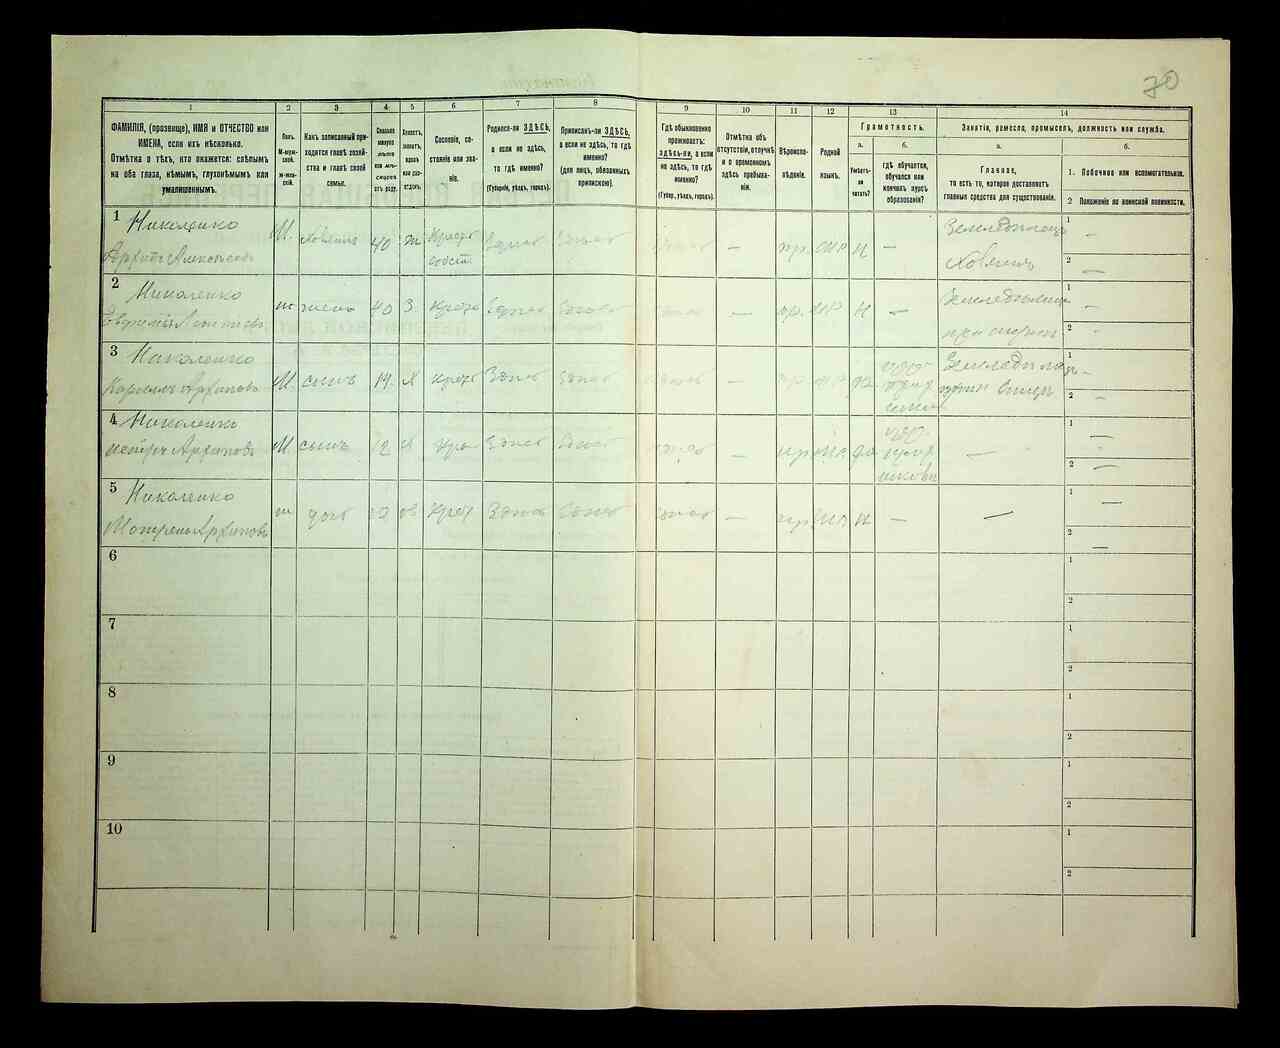 70
1
2
3
4
5
6
7
8
9
10
11
12
13
14
ФАМИЛІЯ, (прозвище), ИМЯ и ОТЧЕСТВО или
ИМЕНА, если ихъ нѣсколько.
Отмѣтка о тѣхъ, кто окажется: слѣпымъ
на оба глаза, нѣмымъ, глухонѣмымъ или
умалишеннымъ.
Полъ.
М-муж-
ской.
Ж-жен-
скій.
Какъ записанный при-
ходится главѣ хозяй-
ства и главѣ своей
семьи.
Сколько
минуло
лѣтъ
или мѣ-
сяцевъ
отъ роду.
Холостъ,
женатъ,
вдовъ
или раз-
веденъ.
Сословіе, со-
стояніе или зва-
ніе.
Родился-ли ЗДѢСЬ,
а если не здѣсь,
то гдѣ именно?
(Губернія, уѣздъ, городъ).
Приписанъ-ли ЗДѢСЬ,
а если не здѣсь, то гдѣ
именно?
(для лицъ, обязанныхъ
припискою).
Гдѣ обыкновенно
проживаетъ:
здѣсь-ли, а если
не здѣсь, то гдѣ
именно?
(Губер., уѣздъ, городъ).
Отмѣтка объ
отсутствіи, отлучкѣ
и о временномъ
здѣсь пребыва-
ніи.
Вѣроиспо-
вѣданіе.
Родной
языкъ.
Грамотность.
а.
Умѣетъ-
ли
читать?
б.
гдѣ обучается,
обучался или
кончилъ курсъ
образованія?
Занятіе, ремесло, промыселъ, должность или служба.
а.
Главное,
то есть то, которое доставляетъ
главныя средства для существованія.
б.
1. Побочное или вспомогательное.
2 Положеніе по воинской повинности.
1 Николенко
Архипъ Алексѣевъ
М. хозяинъ 40 ж Крест собств. Здѣсь Здѣсь Здѣсь — пр. мр. н —
Земледѣлецъ
Хозяинъ
1 —
2 —
2 Николенко
ж жена 40 З. Крест Здѣсь Здѣсь Здѣсь — пр. мр. н —
1 —
2 -
3 Николенко
Архиповъ
М. сынъ 14. х Крест Здѣсь Здѣсь Здѣсь — пр. мр. да
при отцѣ
1 —
2 —
4 Николенко
Петръ Архиповъ
М. сынъ 12 х Кре Здѣсь Здѣсь Здѣсь — пр. мр. да
—
1 —
2 —
5 Николенко
Архипова
ж доч Крест Здѣсь Здѣсь Здѣсь — пр. мр. н — —
1 —
2 —
6
1
2
7
1
2
8
1
2
9
1
2
10
1
2